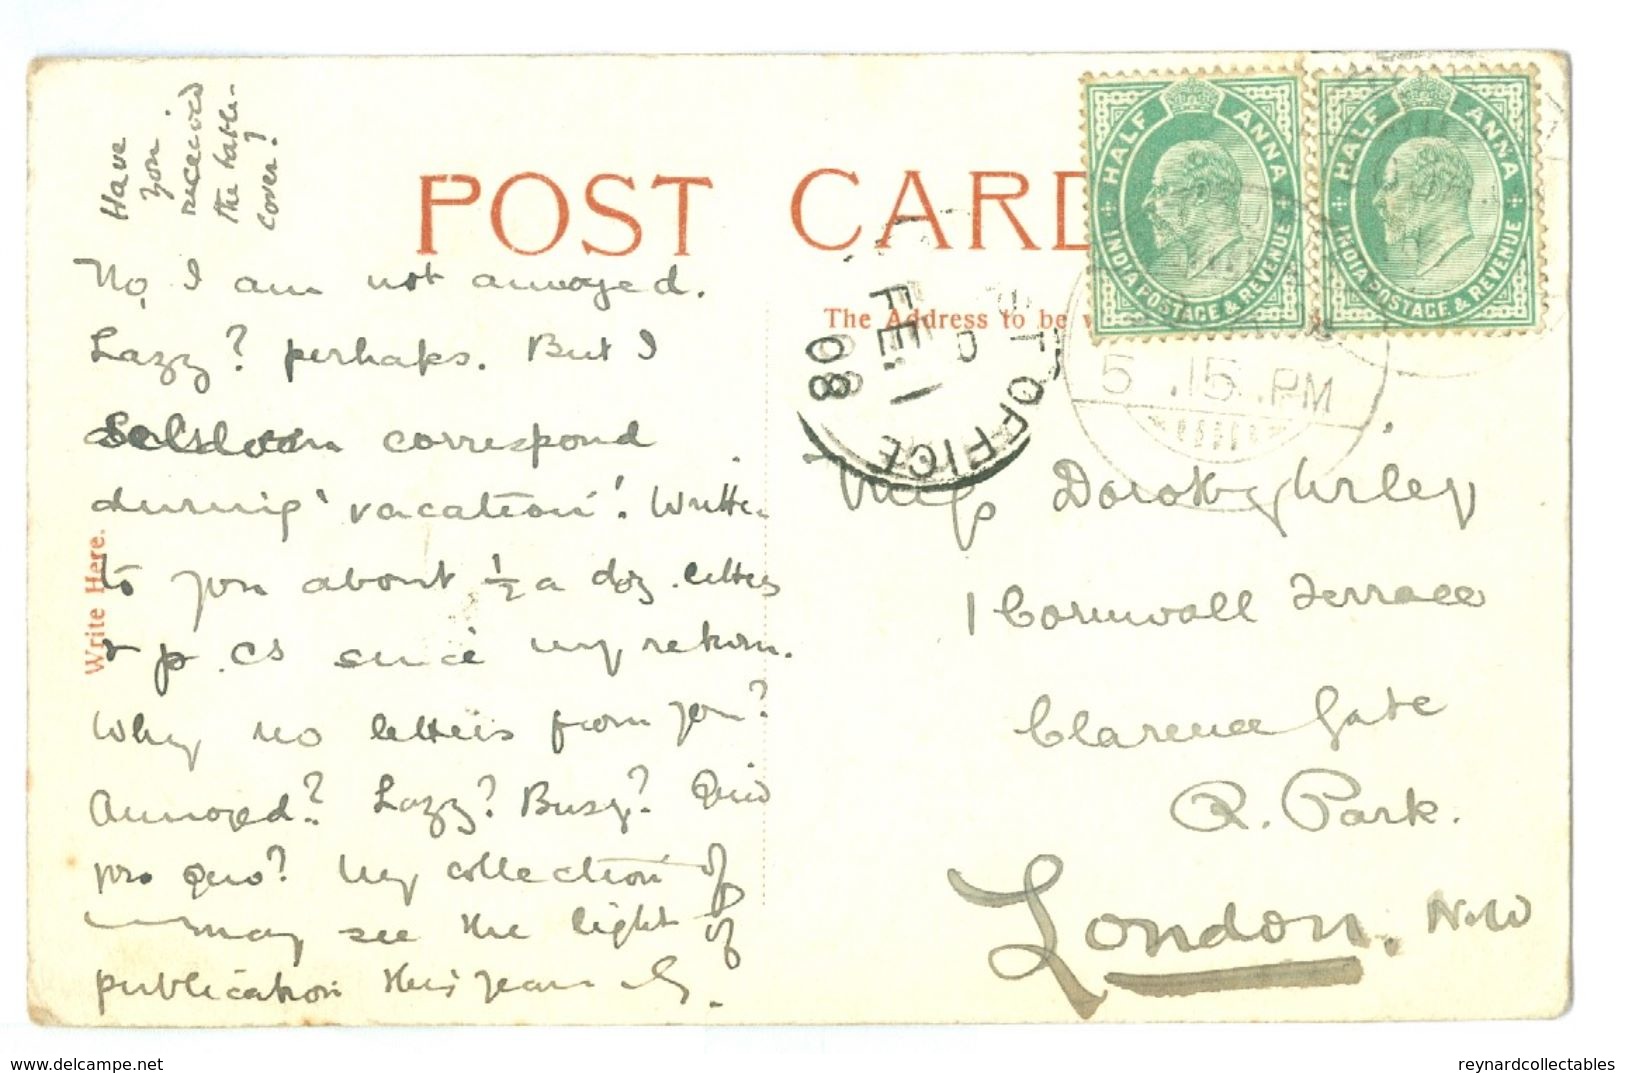 Have
you
received
the table-
cover?
POST CARD
HALF ANNA
INDIA POSTAGE & REVENUE
HALF ANNA
INDIA POSTAGE & REVENUE
The Address to be
OFFICE
FE 1
08
5.15.PM
Write Here.
No, I am not annoyed.
Lazy? perhaps. But I
seldom correspond
during 'vacation'! Written
to you about ½ a doz. letters
& p.cs since my return.
Why no letters from you?
Annoyed? Lazy? Busy? Quid
pro quo? My collection of
may see the light of
publication this year
Miss Dorothy Urley
1 Cornwall Terrace
Clarence Gate
R. Park.
London. N.W
www.delcampe.net
reynardcollectables